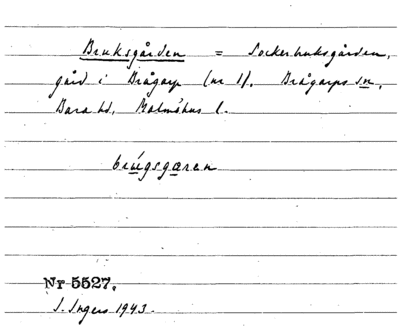 Bruksgården = Sockerbruksgården,
gård i Brågarp (nr 1). Brågarps sn,
Bara hd, Malmöhus l.
brúgsgæren
Nr 5527.
I. Ingers 1943.